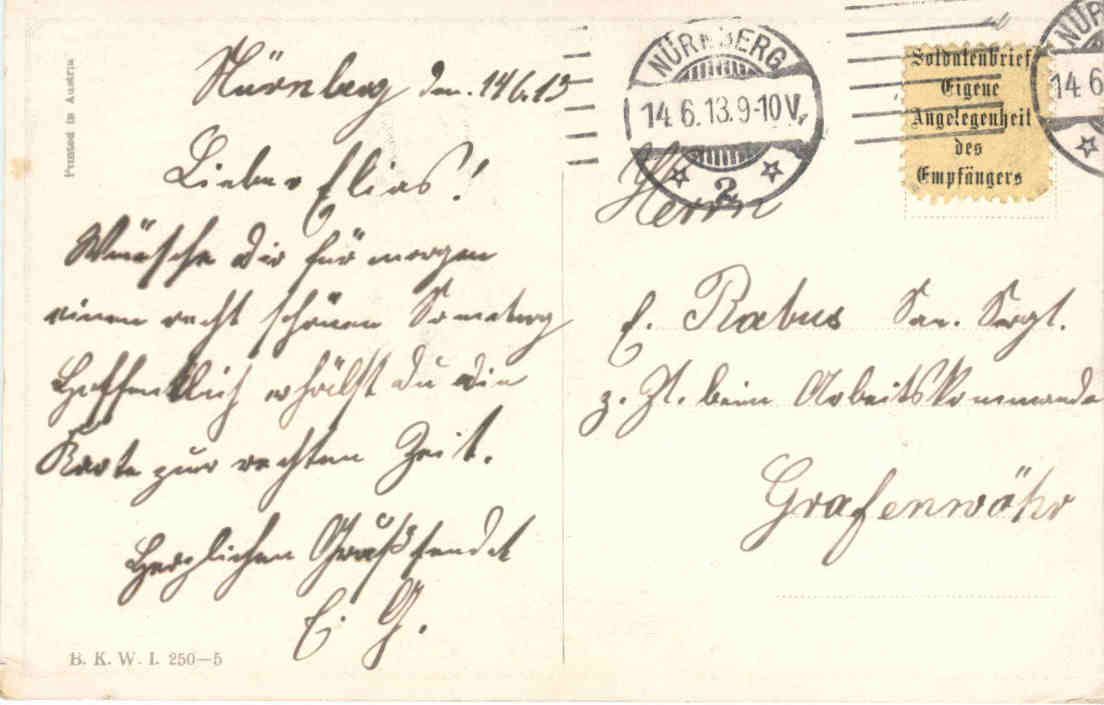 Printed in Austria
Nürnberg den. 14.6.13
Lieber Elias!
Wünsche Dir für morgen
einen recht schönen Sonntag
Hoffentlich erhälst du die
Karte zur rechten Zeit.
Herzlichen Gruß sendet
E. G.
B. K. W. I. 250—5
NÜRNBERG
14.6.13.9-10V.
2
NÜR
14.6
Soldatenbrief
Eigene
Angelegenheit
des
Empfängers
Herrn
E. Rabus San. Sergt.
z. Zt. beim Arbeitskommando
Grafenwöhr